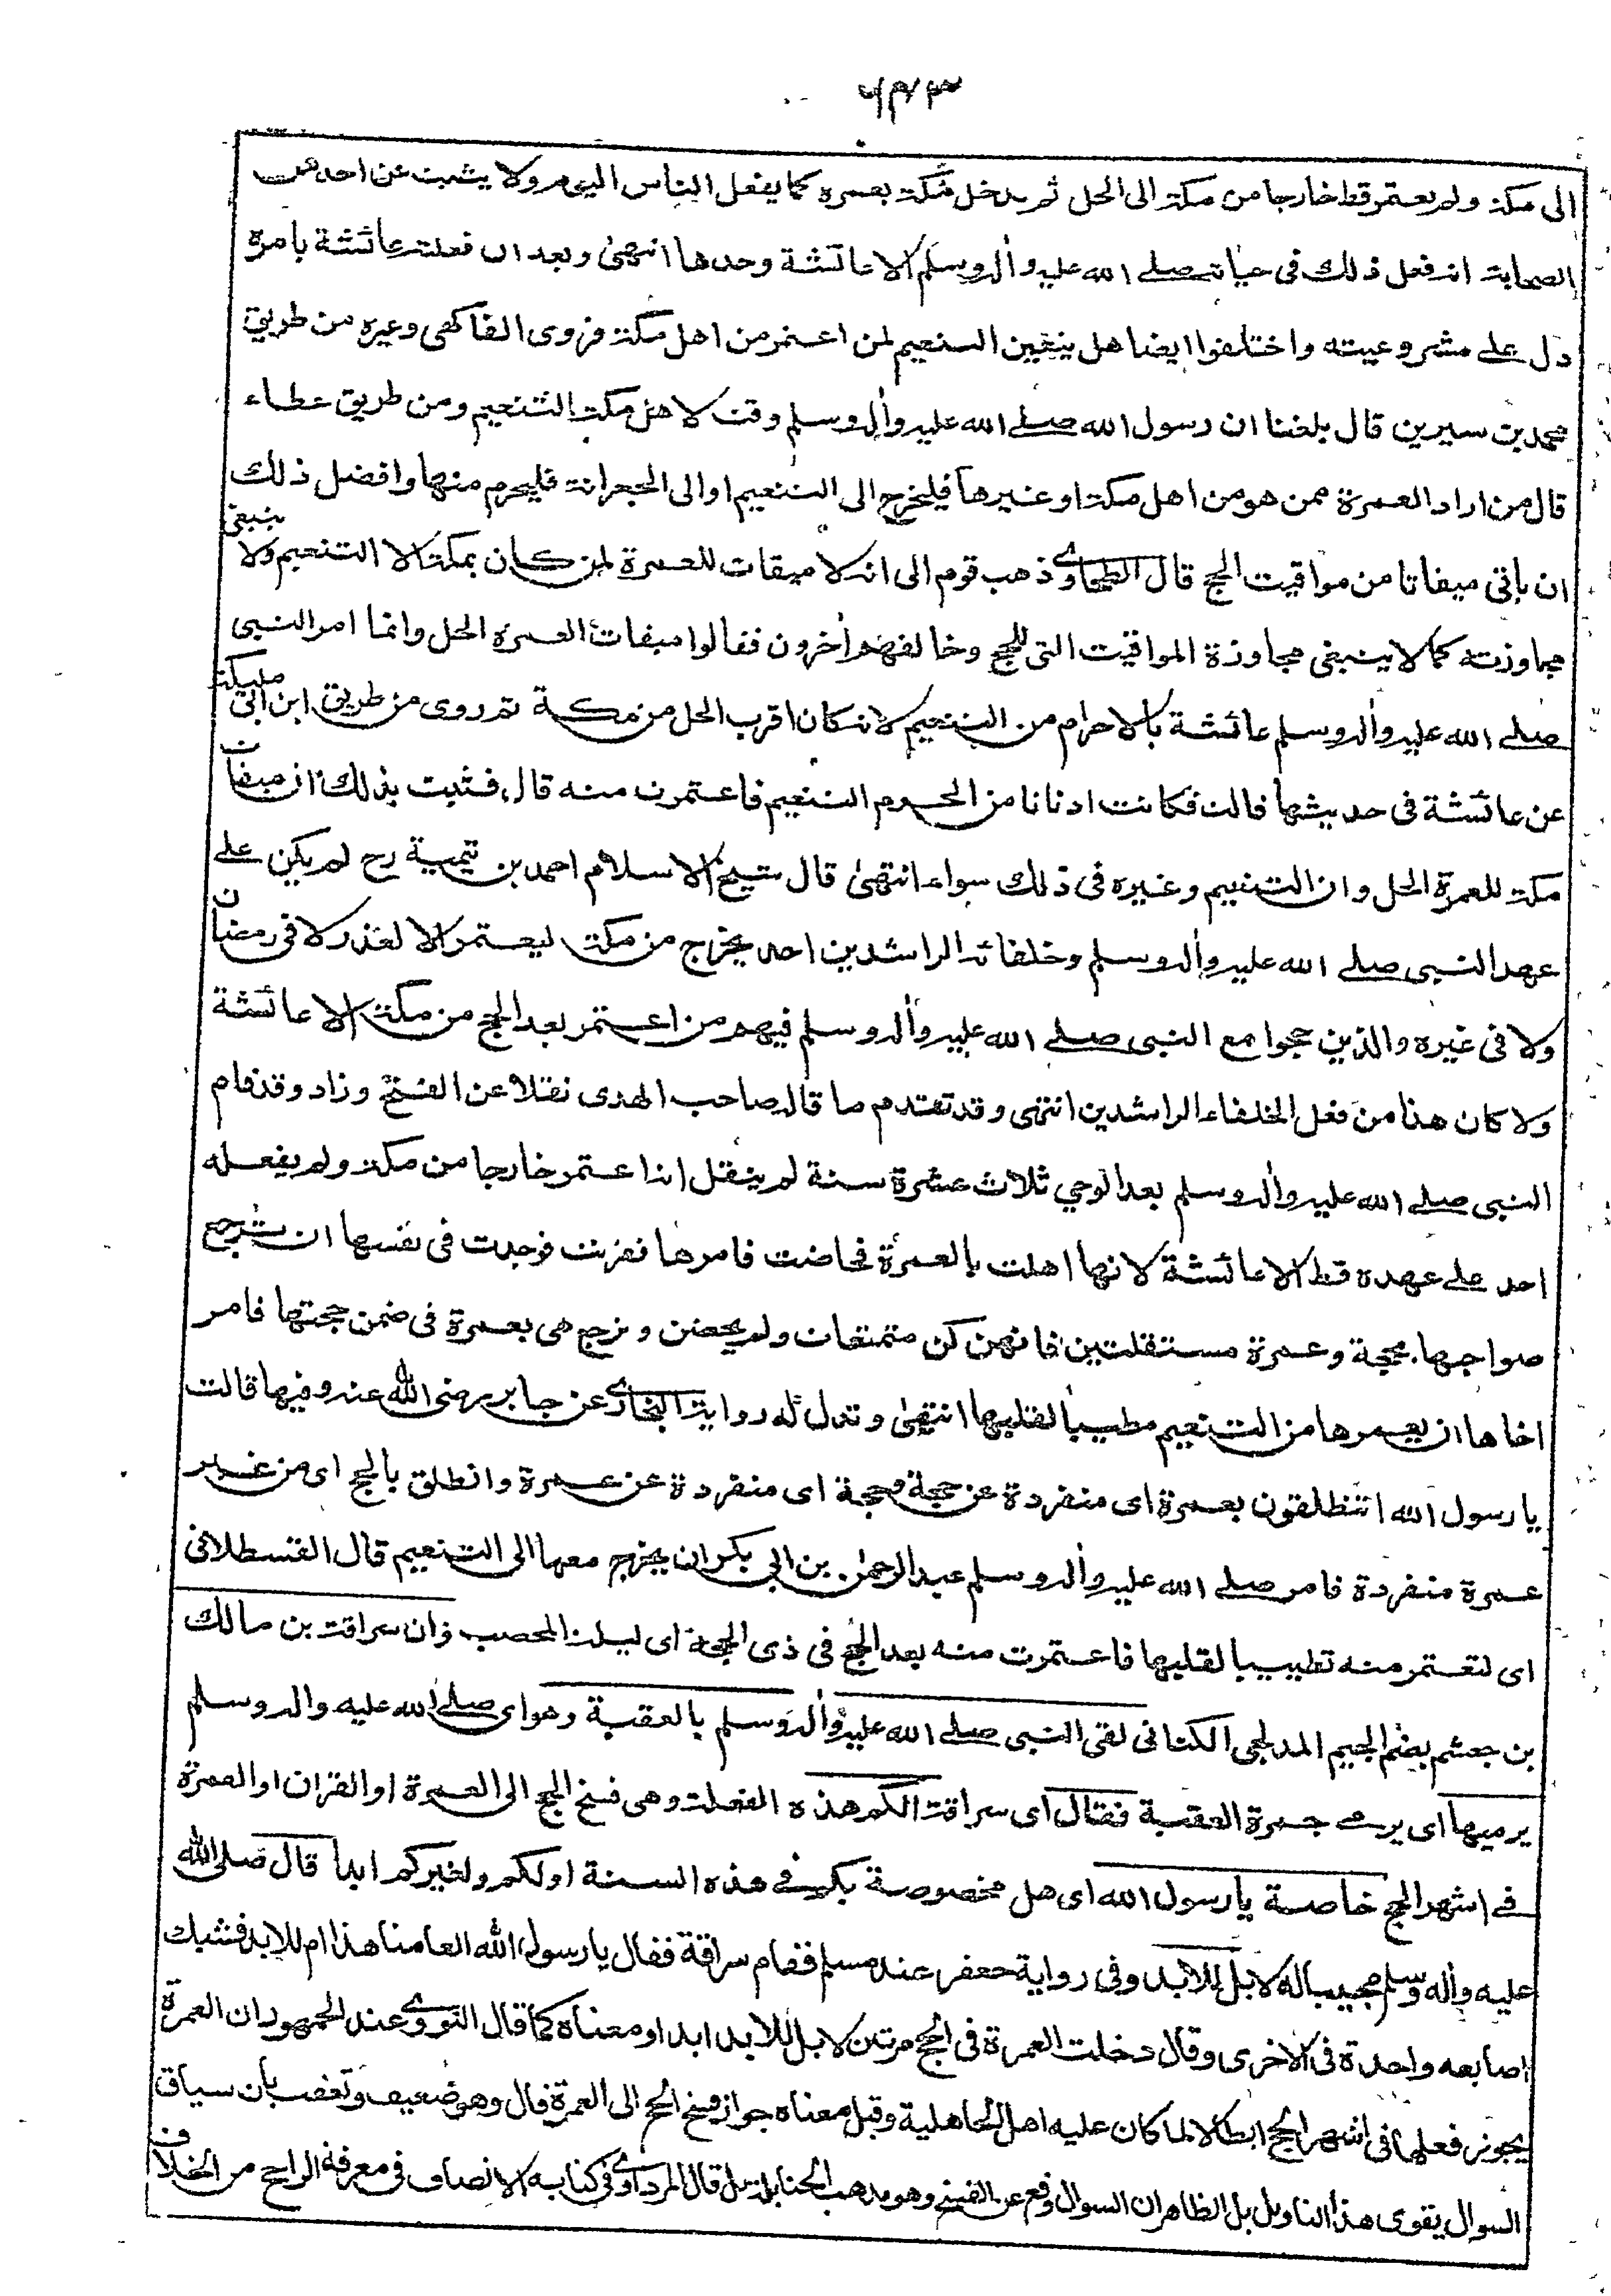 ٦٤٣
الى مكة ولم يعتمر قط خارجا من مكة الى الحل ثم يدخل مكة بعمرة كما يفعل الناس اليوم ولا يثبت عن احد من
الصحابة انه فعل ذلك فى حياته صلے الله عليه وأله وسلم الا عائشة وحدها انتهىٰ وبعد ان فعلته عائشة بامره
دل علے مشروعيته واختلفوا ايضا هل يتعين التنعيم لمن اعتمر من اهل مكة فروى الفاكهى وغيره من طريق
محمد بن سيرين قال بلغنا ان رسول الله صلے الله عليه وأله وسلم وقت لاهل مكة التنعيم ومن طريق عطاء
قال من اراد العمرة ممن هو من اهل مكة او غيرها فليخرج الى التنعيم او الى الجعرانة فليحرم منها وافضل ذلك
ان ياتى ميقاتا من مواقيت الحج قال الطحاوے ذهب قوم الى انه لا ميقات للعمرة لمن كان بمكة الا التنعيم ولا ينبغى
مجاوزته كما لا ينبغى مجاوزة المواقيت التى للحج وخالفهم أخرون فقالوا ميقات العمرة الحل وانما امر النبى
صلے الله عليه وأله وسلم عائشة بالاحرام من التنعيم لانه كان اقرب الحل من مكة ثم روى من طريق ابن ابى مليكة
عن عائشة فى حديثها قالت فكانت ادنانا من الحرم التنعيم فاعتمرت منه قال فثبت بذلك ان ميقات
مكة للعمرة الحل وان التنعيم وغيره فى ذلك سواء انتهىٰ قال شيخ الاسلام احمد بن تيمية رح لم يكن علے
عهد النبى صلے الله عليه وأله وسلم وخلفائه الراشدين احد يخرج من مكة ليعتمر الا لعذر لا فى رمضان
ولا فى غيره والذين حجوا مع النبى صلے الله عليه وأله وسلم فيهم من اعتمر بعد الحج من مكة الا عائشة
ولا كان هذا من فعل الخلفاء الراشدين انتهى وقد تقدم ما قاله صاحب الهدى نقلا عن الفتح وزاد وقد قام
النبى صلے الله عليه وأله وسلم بعد الوحي ثلاث عشرة سنة لم ينقل انه اعتمر خارجا من مكة ولم يفعله
احد علے عهده قط الا عائشة لانها اهلت بالعمرة فحاضت فامرها فقرنت فوجدت فى نفسها ان ترجع
صواحبها بحجة وعمرة مستقلتين فانهن كن متمتعات ولم يحضن وترجع هى بعمرة فى ضمن حجتها فامر
اخاها ان يعمرها من التنعيم مطيبا لقلبها انتهىٰ وتدل له رواية البخارے عن جابر رضى الله عنه وفيها قالت
يا رسول الله اتنطلقون بعمرة اى منفردة عن حجة وحجة اى منفردة عن عمرة وانطلق بالحج اى من غير
عمرة منفردة فامر صلے الله عليه وأله وسلم عبد الرحمٰن بن ابى بكر ان يخرج معها الى التنعيم قال القسطلانى
اى لتعتمر منه تطييبا لقلبها فاعتمرت منه بعد الحج فى ذى الحجة اى ليلة المحصب وان سراقة بن مالك
بن جعشم بضم الجيم المدلجى الكنانى لقى النبى صلے الله عليه وأله وسلم بالعقبة وهو اى صلے الله عليه واله وسلم
يرميها اى يرمے جمرة العقبة فقال اى سراقة الكم هذه الفعلة وهى فسخ الحج الى العمرة او القران او العمرة
فے اشهر الحج خاصة يا رسول الله اى هل مخصوصة بكم فے هذه السنة او لكم ولغيركم ابدا قال صلى الله
عليه وأله وسلم مجيبا له لا بل للابد وفى رواية جعفر عند مسلم فقام سراقة فقال يا رسول الله العامنا هذا ام للابد فشبك
اصابعه واحدة فى الاخرى وقال دخلت العمرة فى الحج مرتين لا بل للابد ابدا ومعناه كما قال النووے عند الجمهور ان العمرة
يجوز فعلها فى اشهر الحج ابطالا لما كان عليه اهل الجاهلية وقيل معناه جواز فسخ الحج الى العمرة قال وهو ضعيف وتعقب بان سياق
السوال يقوى هذا التاويل بل الظاهر ان السوال وقع عن الفسخ وهو مذهب الحنابلة بل قال المرداوے فى كتابه الانصاف فى معرفة الراجح من الخلاف